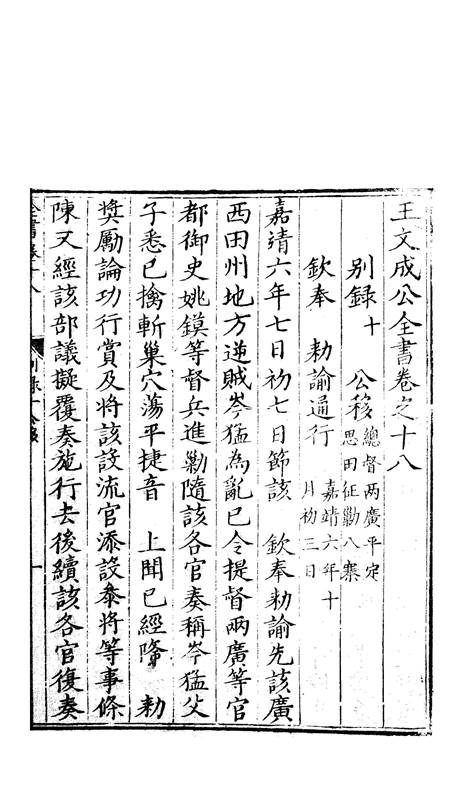 王文成公全書卷之十八
別録十 公移 總督两廣平定
思田征勦八寨
欽奉 勑諭通行 嘉靖六年十
月初三日
嘉靖六年七日初七日節該 欽奉勑諭先該廣
西田州地方逆賊岑猛為亂已令提督两廣等官
都御史姚鏌等督兵進勦隨該各官奏稱岑猛父
子悉已擒斬巢穴蕩平捷音 上聞已經降 勑
奬勵論功行賞及將該設流官添設叅將等事條
陳又經該部議擬覆奏施行去後續該各官復奏